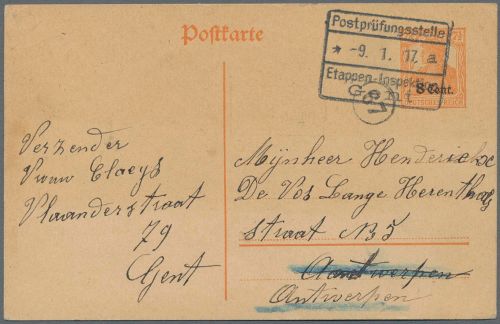 Postkarte
Postprüfungsstelle
* -9. 1. 17. a
Etappen-Inspektion
Gent
8 Cent.
DEUTSCHES REICH
Verzender
Vrouw Claeys
Vlaanderstraat
79
Gent
Mijnheer Henderickx
De Vos Lange Herenthals
straat N: 5
Antwerpen
Antwerpen